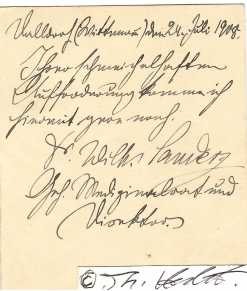 Dalldorf (Wittenau) den 24. Juli 1908.
Ihrer schmeichelhaften
Aufforderung komme ich
hiermit gern nach.
Dr. Wilh. Sander
Geh. Medizinalrat und
Direktor.
©